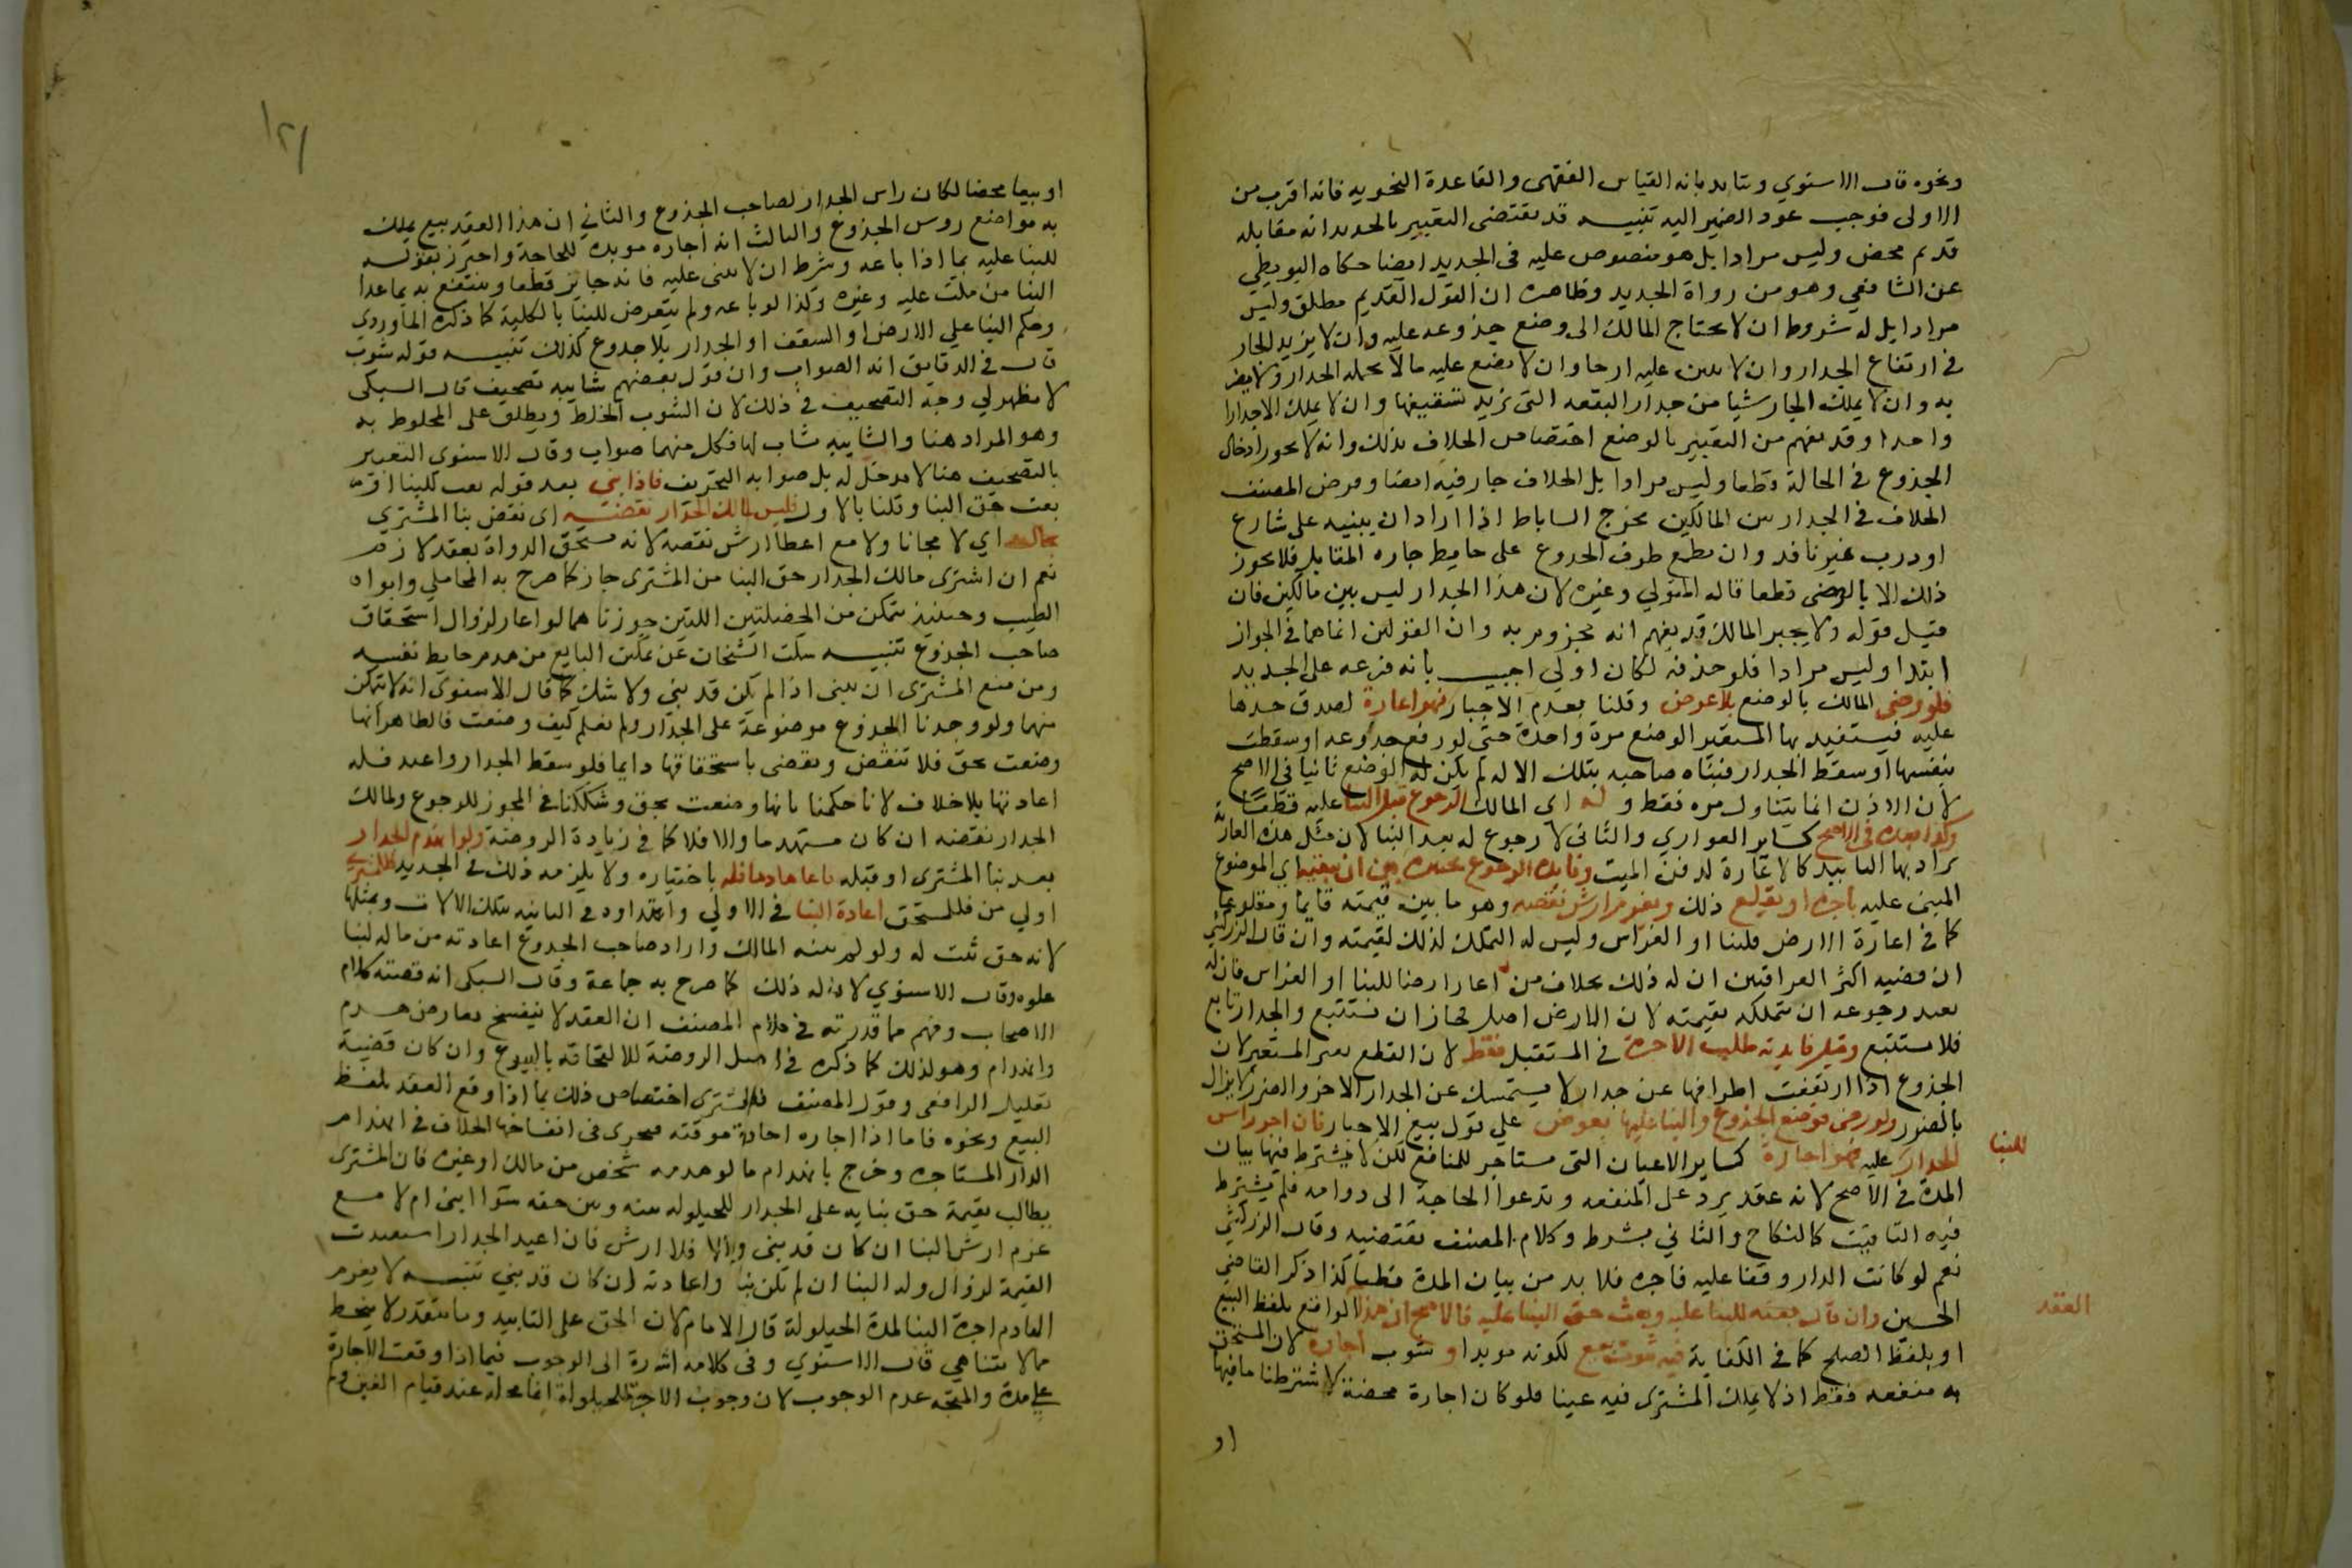 ونحوه قال الاسنوي ويتايد بانه القياس الفقهي والقاعدة النحويه فانه اقرب من
الاولى فوجب عود الضمير اليه تنبيـه قد يقتضى التعبير بالجديد انه مقابله
قديم محض وليس مرادا بل هو منصوص عليه في الجديد ايضا حكاه البويطي
عن الشافعي وهو من رواة الجديد وظاهره ان القول القديم مطلق وليس
مرادا بل له شروط ان لا يحتاج المالك الى وضع جذوعه عليه وان لا يزيد الجار
في ارتفاع الجدار وان لا يبني عليه ازجا وان لا يضع عليه ما لا يحمله الجدار ولا يضر
به وان لا يملك الجار شيا من جدار البقعه التي يريد تسقيفها وان لا يملك الا جدارا
واحدا وقد يفهم من التعبير بالوضع اختصاص الخلاف بذلك وانه لا يجوز ادخال
الجذوع في الحالة قطعا وليس مرادا بل الخلاف جار فيه ايضا وفرض المصنف
الخلاف في الجدار بين المالكين يخرج الساباط اذا اراد ان يبنيه على شارع
او درب غير نافد وان يضع طرف الجذوع على حايط جاره المقابل فلا يجوز
ذلك الا بالرضى قطعا قاله المتولي وغيره لان هذا الجدار ليس بين مالكين فان
قيل قوله ولا يجبر المالك قد يفهم انه مجزوم به وان القولين انما هما في الجواز
ابتدا وليس مرادا فلو حذفه لكان اولي اجيـب بانه فرعه على الجديد
فلو رضى المالك بالوضع بلا عوض وقلنا بعدم الاجبار فهو اعارة لصدق حدها
عليه فيستفيد بها المستعير الوضع مرة واحدة حتى لو رفع جذوعه او سقطت
بنفسها او سقط الجدار فبناه صاحبه بتلك الاله لم يكن له الوضع ثانيا في الاصح
لان الاذن انما يتناول مره فقط و له اى المالك الرجوع قبل البنا عليه قطعًا
وكذا بعده في الاصح كساير العواري والثاني لا رجوع له بعد البنا لان مثل هذه العارية
يراد بها التابيد كالاعارة لدفن الميت وفايدة الرجوع تخييره بين ان يبقيه اي الموضوع
المبنى عليه باجره او يقلع ذلك ويغرم ارش نقصه وهو ما بين قيمته قايما ومقلوعا
كما في اعارة الارض للبنا او الغراس وليس له التملك لذلك لقيمته وان قال الزركشي
ان قضيه اكثر العراقيين ان له ذلك بخلاف من اعار ارضا للبنا او الغراس فان له
بعد رجوعه ان يتملكه بقيمته لان الارض اصل فجاز ان تستتبع والجدار تابع
فلا يستتبع وقيل فايدته طلب الاجرة في المستقبل فقط لان القطع يضر المستعير لان
الجذوع اذا ارتفعت اطرافها عن جدار لا يستمسك عن الجدار الاخر والضرر لا يزال
بالضرر ولو رضى بوضع الجذوع والبنا عليها بعوض على قول بيع الاجبار فان اجر راس
للبنا
الجدار عليه فهو اجارة كساير الاعيان التي تستاجر للمنافع لكن لا يشترط فيها بيان
المدة في الاصح لانه عقد يرد على المنفعه وتدعوا الحاجة الى دوامه فلم يشترط
فيه التاقيت كالنكاح والثاني يشترط وكلام المصنف يقتضيه وقال الزركشي
نعم لو كانت الدار وقفا عليه فاجره فلا بد من بيان المدة قطعا كذا ذكر القاضي
الحسين وان قال بعته للبنا عليه وبعت حق البنا عليه فالاصح ان هذا الواقع بلفظ البيع
العقد
او بلفظ الصلح كما في الكفاية فيه شوب بيع لكونه موبدا و شوب اجارة لان المستحق
به منفعه فقط اذ لا يملك المشتري فيه عينا فلو كان اجارة محضة لاشترطنا ما فيها
او
١٢١
او بيعا محضا لكان راس الجدار لصاحب الجذوع والثاني ان هذا العقد بيع يملك
به مواضع روس الجذوع والثالث انه اجاره موبده للحاجة واحترز بقولـه
للبنا عليه بما اذا باعه وشرط ان لا يبنى عليه فانه جائز قطعا وينتفع به بما عدا
البنا من مكث عليه وغيره وكذا لو باعه ولم يتعرض للبنا بالكلية كما ذكره الماوردي
وحكم البنا علي الارض او السقف او الجدار بلا جدوع كذلك تنبيـه قوله شوب
قال في الدقايق انه الصواب وان قول بعضهم شايبه تصحيف قال السبكى
لا يظهر لي وجه التصحيف في ذلك لان الشوب الخلط ويطلق على المخلوط به
وهو المراد هنا والشايبه شاب لها فكل منهما صواب وقال الاسنوي التعبير
بالتصحيف هنا لا مدخل له بل صوابه التحريف فاذا بني بعد قوله بعت للبنا او
بعت حق البنا وقلنا بالاول فليس لمالك الجدار نقضـه اى نقض بنا المشتري
بحال اي لا مجانا ولا مع اعطا ارش نقصه لانه مستحق الدوام بعقد لازم
نعم ان اشترى مالك الجدار حق البنا من المشترى جاز كما صرح به المحاملي وابوا
الطيب وحينيذ يتمكن من الخصلتين اللتين جوزناهما لو اعار لزوال استحقاق
صاحب الجذوع تنبيـه سكت الشيخان عن تمكن البايع من هدم حايط نفسه
ومن منع المشتري ان يبنى اذا لم يكن قد بني ولا شك كما قال الاسنوى انه لا يتمكن
منهما ولو وجدنا الجذوع موضوعة على الجدار ولم نعلم كيف وضعت فالظاهر انها
وضعت بحق فلا تنقض ويقضى باستحقاقها دايما فلو سقط الجدار واعيد فله
اعادتها بلا خلاف لانا حكمنا بانها وضعت بحق وشككنا في المجوز للرجوع ولمالك
الجدار نقضه ان كان مستهدما والا فلا كما في زيادة الروضة ولو انهدم الجدار
بعد بنا المشترى او قبله فاعاده مالكه باختياره ولا يلزمه ذلك في الجديد فللمشتري
اولي من فللمستحق اعادة البنا في الاولي وابتداوه في الثانيه بتلك الالات وبمثلها
لانه حق ثبت له ولو لم يبنه المالك واراد صاحب الجدوع اعادته من ماله لبنا
علوه وقال الاسنوي لا ذله ذلك كما صرح به جماعة وقال السبكى انه قضية كلام
الاصحاب وفهم مما قدرته في كلام المصنف ان العقد لا ينفسخ بعارض هـدم
وانهدام وهو لذلك كما ذكره في اصل الروضة للالتحاقه بالبيوع وان كان قضية
تعليل الرافعى وقول المصنف فللمشترى اختصاص ذلك بما اذا وقع العقد بلفظ
البيع ونحوه فاما اذا اجاره اجارة موقته فيجرى في انفساخها الخلاف في انهدام
الدار المستاجره وخرج بانهدام ما لو هدمه شخص من مالك او غيره فان المشترى
يطالب بقيمة حق بنايه على الجدار للحيلوله بينه وبين حقه سوا ابني ام لا مـع
غرم ارش البنا ان كان قد بنى والا فلا ارش فان اعيد الجدار استعيدت
القيمة لزوال وله البنا ان لم تكن بنا واعادته ان كان قد بني تنبيـه لا يغرم
الهادم اجرة البنا لمدة الحيلولة قال الامام لان الحق على التابيد وما يتقدر لا ينحط
مما لا يتناهي قال الاسنوي وفى كلامه اشارة الى الوجوب فيما اذا وقعت الاجارة
علي مدة والمتجه عدم الوجوب لان وجوب الاجرة للحيلولة انما محله عند قيام العين ولم